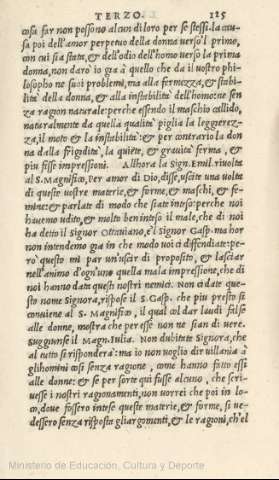 TERZO. 115
cosa far non possono alcun di loro per se stessi. La cau-
sa poi dell'amor perpetuo della donna verso'l primo,
con cui sia stata, & dell'odio dell'homo verso la prima
donna, non darò io già à quello che da il uostro phi-
losopho ne suoi problemi, ma alla fermezza, & stabi-
lità della donna, & alla instabilità dell'homo: ne sen
za ragion naturale: perche essendo il maschio callido,
naturalmente da quella qualità piglia la leggierez-
za, il moto & la instabilità: & per contrario la don
na dalla frigidità, la quiete, & gravità ferma, &
piu fisse impressioni. Allhora la Sign. Emil. riuolta
al S. Magnifico, Per amor di Dio, disse, uscite una uolta
di queste uostre materie, & forme, & maschi, & fe-
mine: & parlate di modo che siate inteso: perche noi
hauemo udito, & molto ben inteso il male, che di noi
ha detto il signor Ottauiano, e'l signor Gasp. ma hor
non intendemo gia in che modo uoi ci diffendiate: pe-
rò questo mi par un'uscir di proposito, & lasciar
nell'animo d'ogn'uno quella mala impressione, che di
noi hanno data questi nostri nemici. Non ci date que-
sto nome Signora, rispose il S. Gasp. che piu presto si
conuiene al S. Magnifico, il qual col dar laudi false
alle donne, mostra che per esse non ne sian di uere.
Suggiunse il Magn. Iulia. Non dubitate Signora, che
al tutto si risponderà: ma io non uoglio dir uillania à
gli homini così senza ragione, come hanno fatto essi
alle donne: & se per sorte quì fusse alcuno, che scri-
uesse i nostri ragionamenti, non uorrei che poi in lo-
co, doue fossero intese queste materie, & forme, si ue-
dessero senza risposta gli argomenti, & le ragioni, ch'el
Ministerio de Educación, Cultura y Deporte